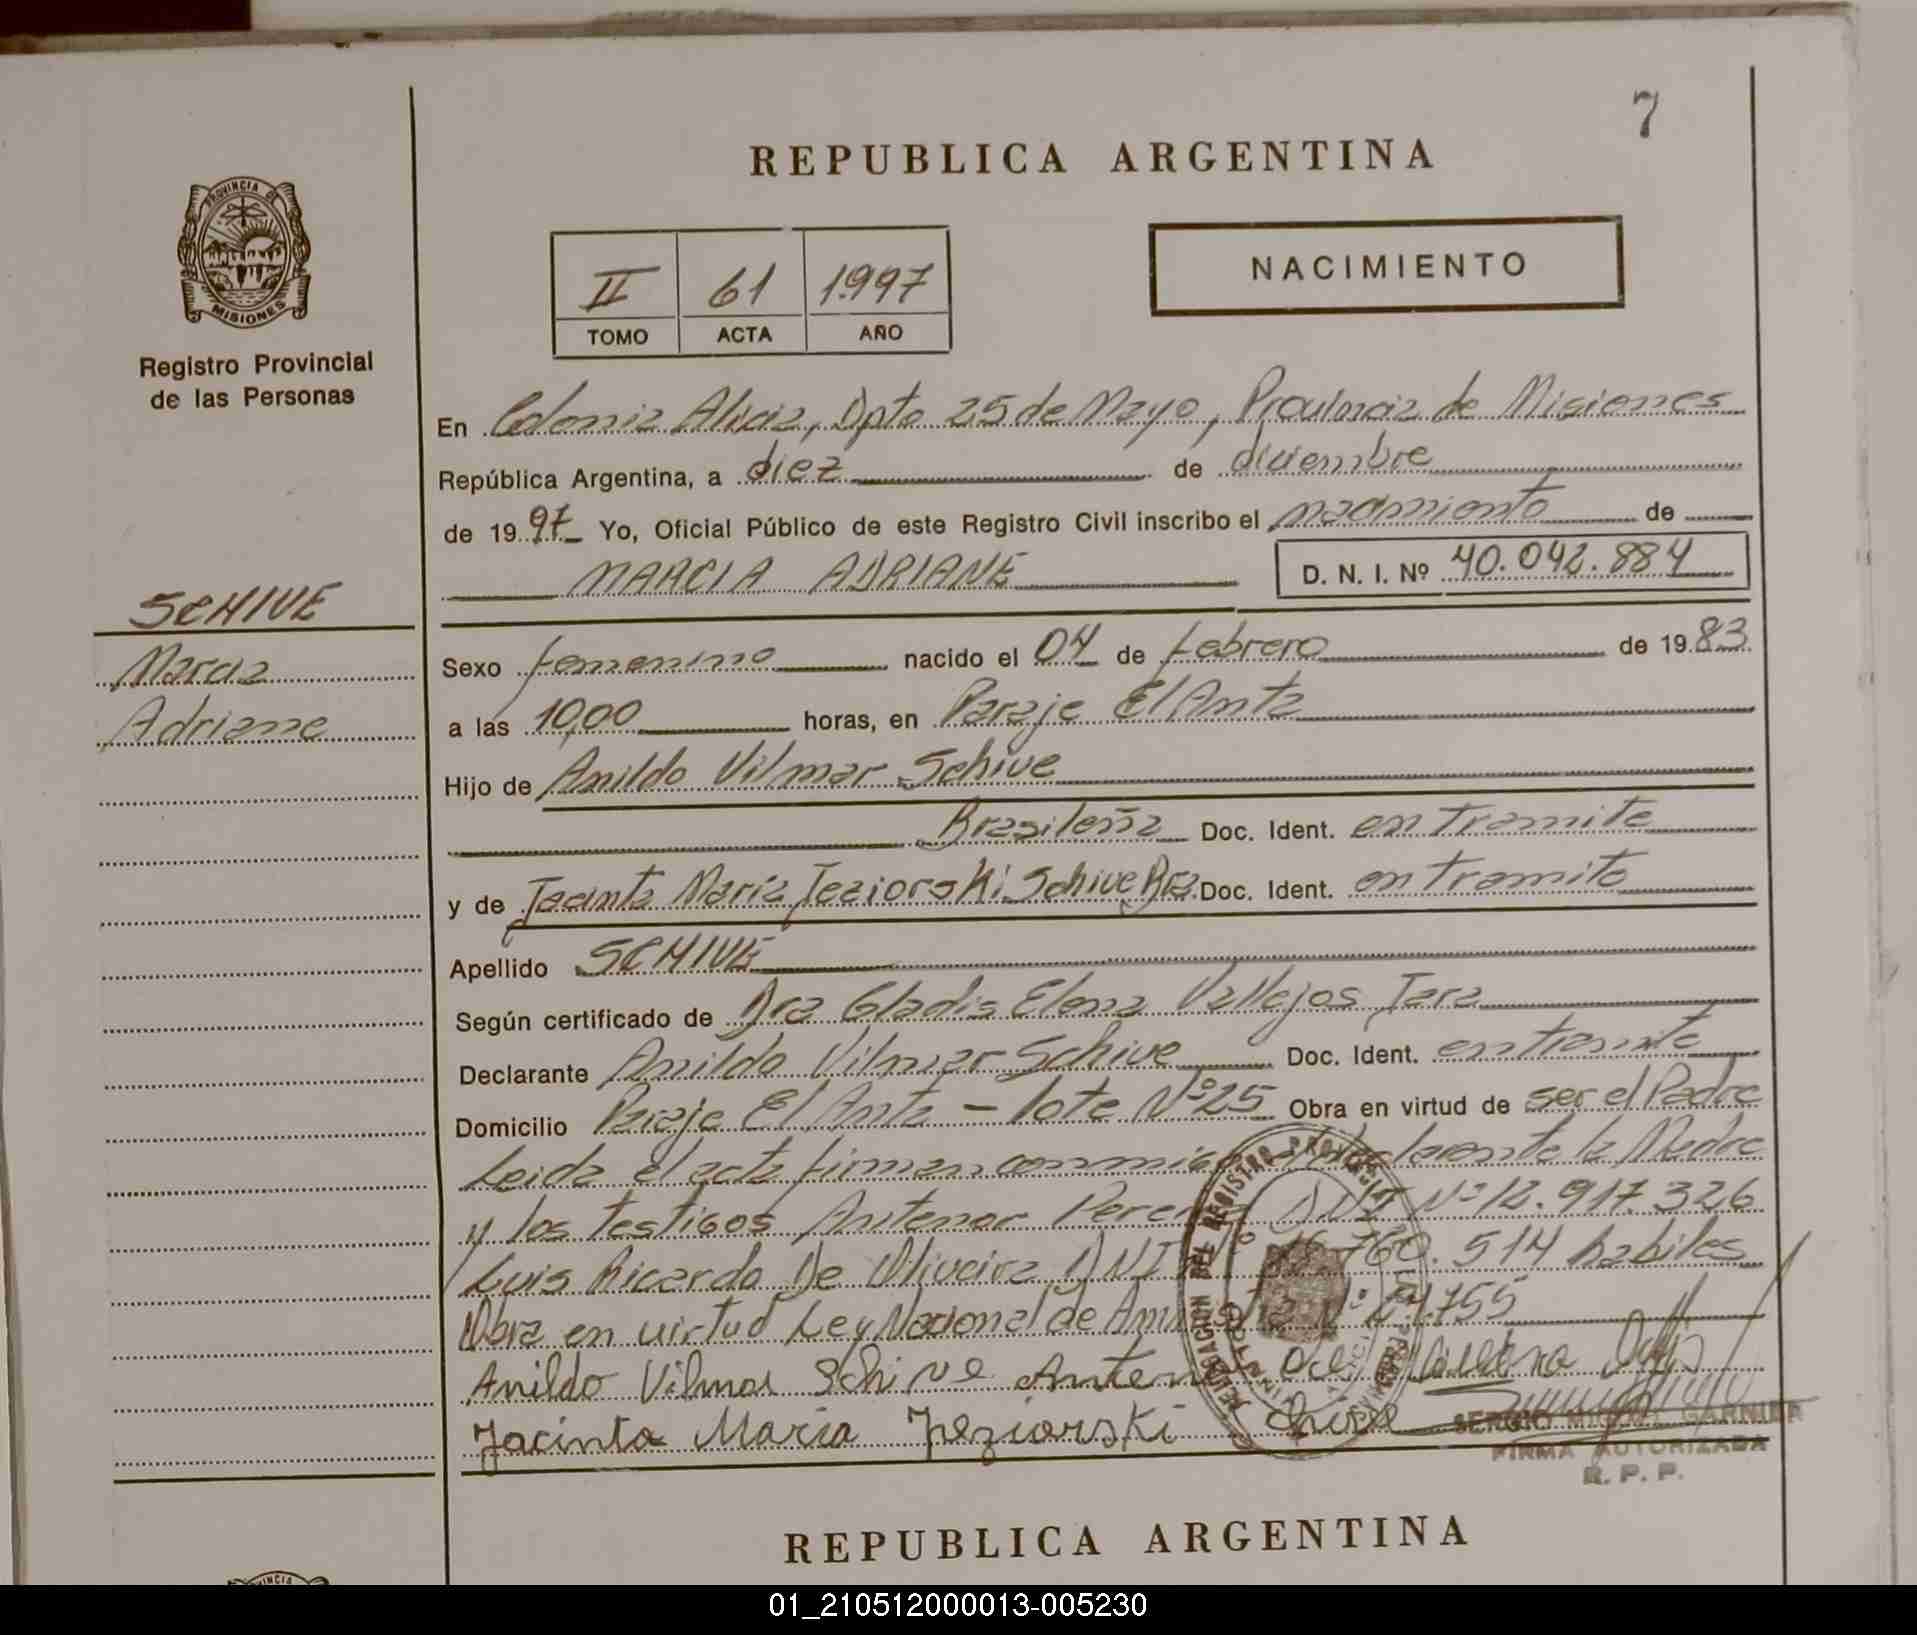 7
REPUBLICA ARGENTINA
PROVINCIA DE
MISIONES
Registro Provincial
de las Personas
II 61 1997
TOMO ACTA AÑO
NACIMIENTO
En Colonia Alicia, Dpto 25 de Mayo, Provincia de Misiones
República Argentina, a diez de diciembre
de 19 97 Yo, Oficial Público de este Registro Civil inscribo el nacimiento de
MARCIA ADRIANE
D. N. I. Nº 40.042.884
SCHIVE
Marcia
Adriane
Sexo femenino nacido el 04 de febrero de 19 83
a las 10,00 horas, en Paraje El Anta
Hijo de Anildo Vilmar Schive
Brasileña Doc. Ident. en tramite
y de Jacinta María Jeziorski Schive Bra. Doc. Ident. en tramite
Apellido SCHIVE
Según certificado de Dra Gladis Elena Vallejos Jara
Declarante Anildo Vilmar Schive Doc. Ident. en tramite
Domicilio Paraje El Anta - lote Nº 25 Obra en virtud de ser el Padre
Leida el acta firman conmigo declarante la Madre
y los testigos Antenor DNI Nº 12.917.326
Luis Ricardo De Oliveira DNI 760.514 habiles
Obra en virtud Ley Nacional de 24.755
Anildo Vilmar Schive
Jacinta Maria Jeziorski Schive
SERGIO MIGUEL GARNIER
FIRMA AUTORIZADA
R. P. P.
REPUBLICA ARGENTINA
01_210512000013-005230